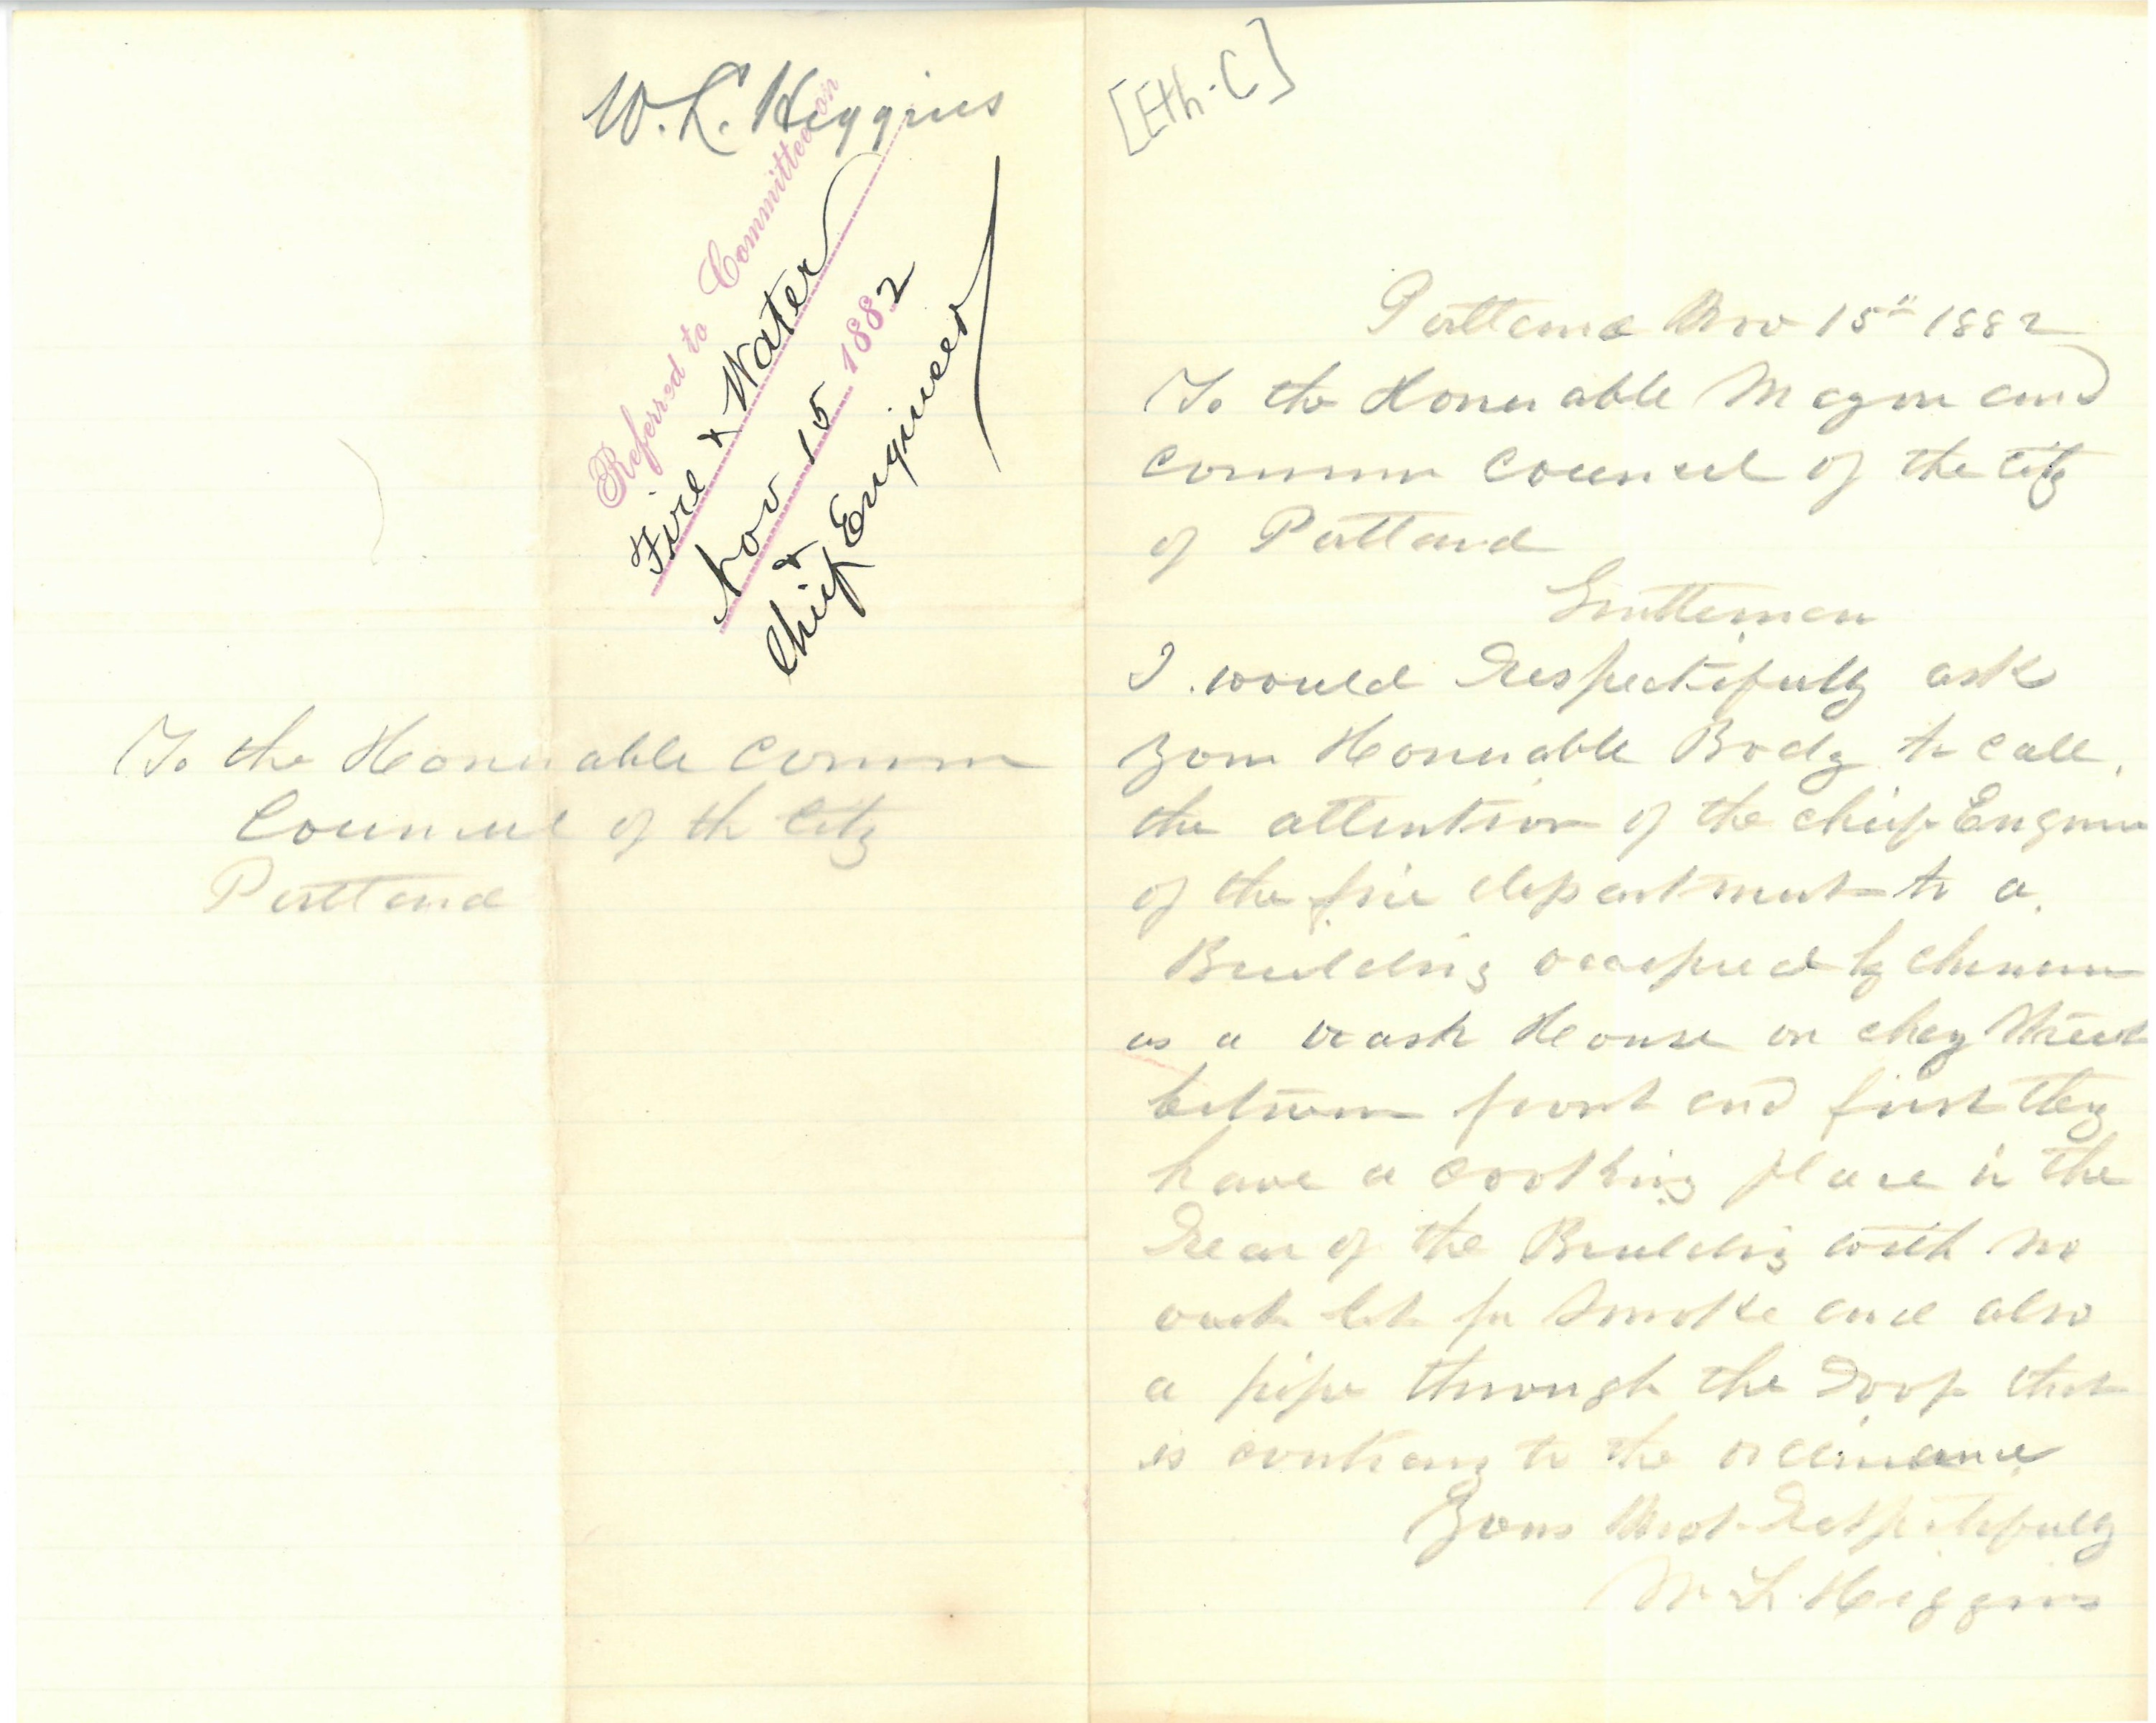 W. L. Higgins
Referred to Committee on
Fire & Water
Nov 15 1882
&
Chief Engineer
To the Honorable Common
Council of th City
Portland
[Eth-C]
Portland Nov 15th 1882
To the Honorable Mayor and
common Counsel of the City
of Portland
Gentlemen
I would Respectifully ask
your Honorable Body to call
the attention of the chief Engineer
of the fire department to a
Building occupied by chinamen
as a wash House on Clay Street
between front and first they
have a cooking place in the
Rear of the Building with no
out let for Smoke and also
a pipe through the Roof that
is contrary to the ordinance
Yours Most Respectifully
W. L. Higgins